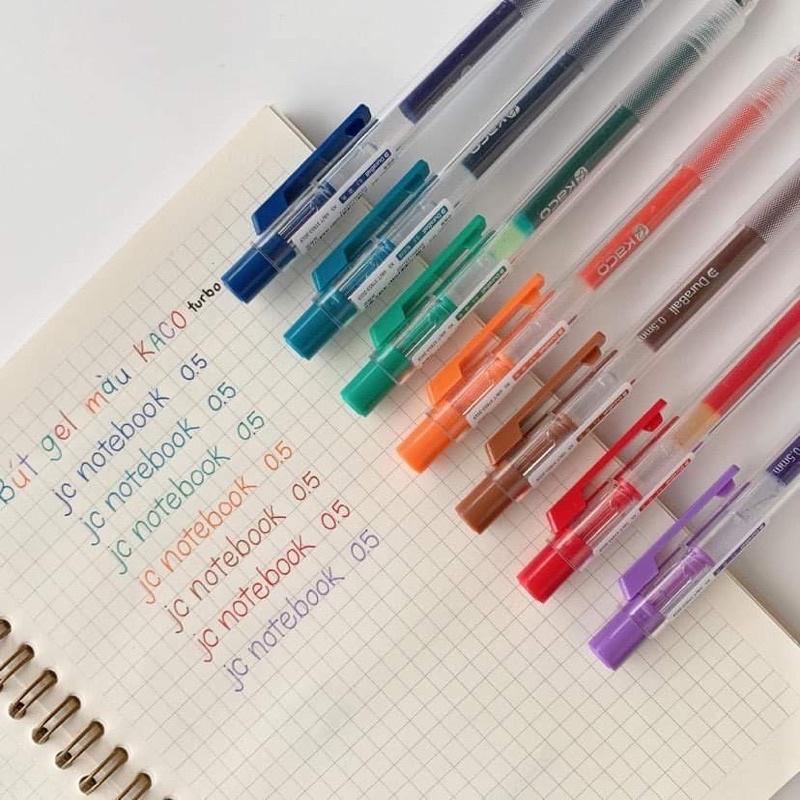 Bút gel màu KACO turbo
jc notebook 0.5
jc notebook 0.5
jc notebook 0.5
jc notebook 0.5
jc notebook 0.5
jc notebook 0.5
jc notebook 0.5
KACO
KACO
KACO
DuraBall 0.5mm
0.5mm